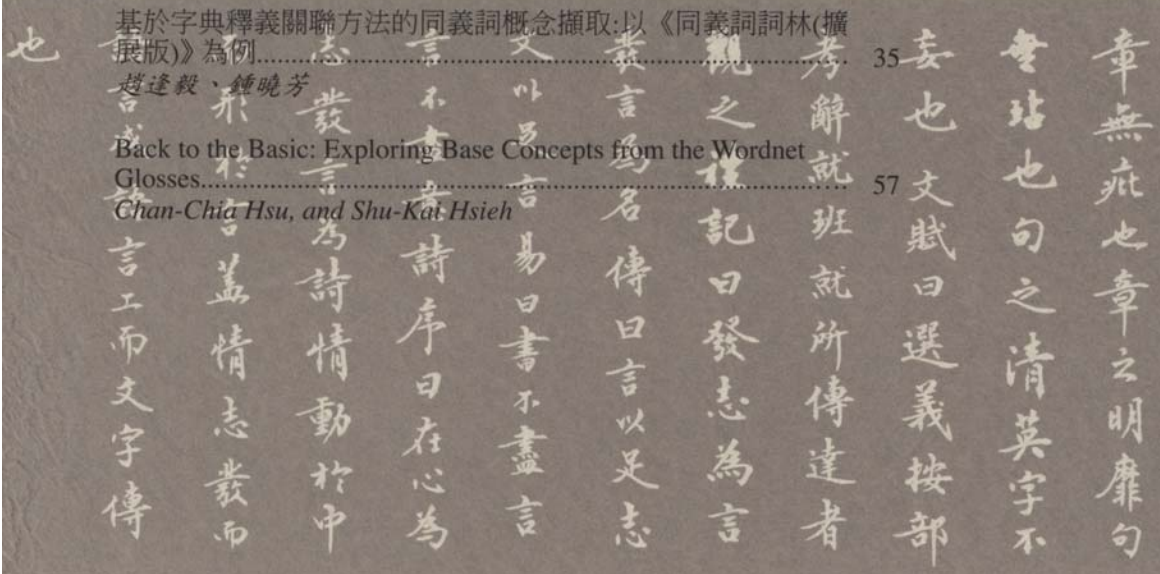 基於字典釋義關聯方法的同義詞概念擷取:以《同義詞詞林(擴
展版)》為例........................................................................................ 35
趙逢毅、鍾曉芳
Back to the Basic: Exploring Base Concepts from the Wordnet
Glosses................................................................................................ 57
Chan-Chia Hsu, and Shu-Kai Hsieh
章無疵也章之明靡句
無玷也句之清英字不
妄也 文賦曰選義按部
考辭就班就所傳達者
觀之禮記曰發志為言
發言為名傳曰言以足志
文以足言易曰書不盡言
言不盡意詩序曰在心為
志發言為詩情動於中
而形於言蓋情志發而
言工而文字傳
也